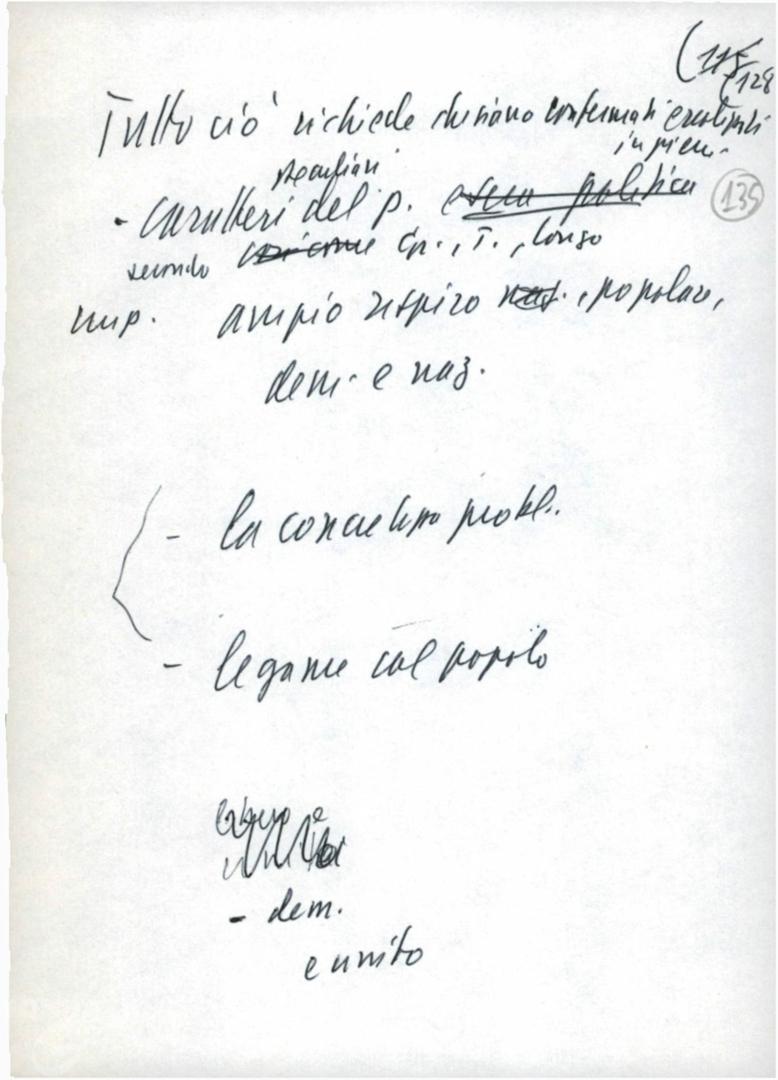 (115
(128
Tutto ciò richiede che siano confermati e
in pieno
135
peculiari
- caratteri del p. politica
secondo Gr., T., Longo
imp. ampio respiro naz., popolare,
dem. e naz.
- la concretezza probl.
- legame col popolo
- dem.
e unito